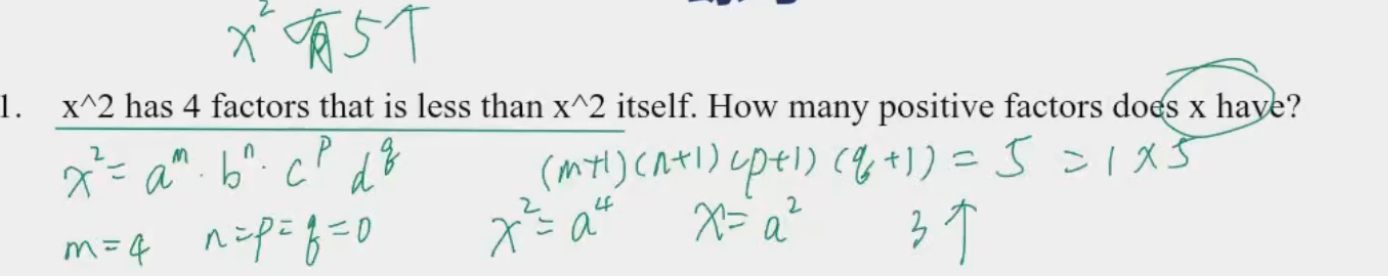 x² 有5个
1. x^2 has 4 factors that is less than x^2 itself. How many positive factors does x have?
x² = a^m · b^n · c^p d^q (m+1)(n+1)(p+1)(q+1) = 5 = 1×5
m=4 n=p=q=0 x²=a⁴ x=a² 3个